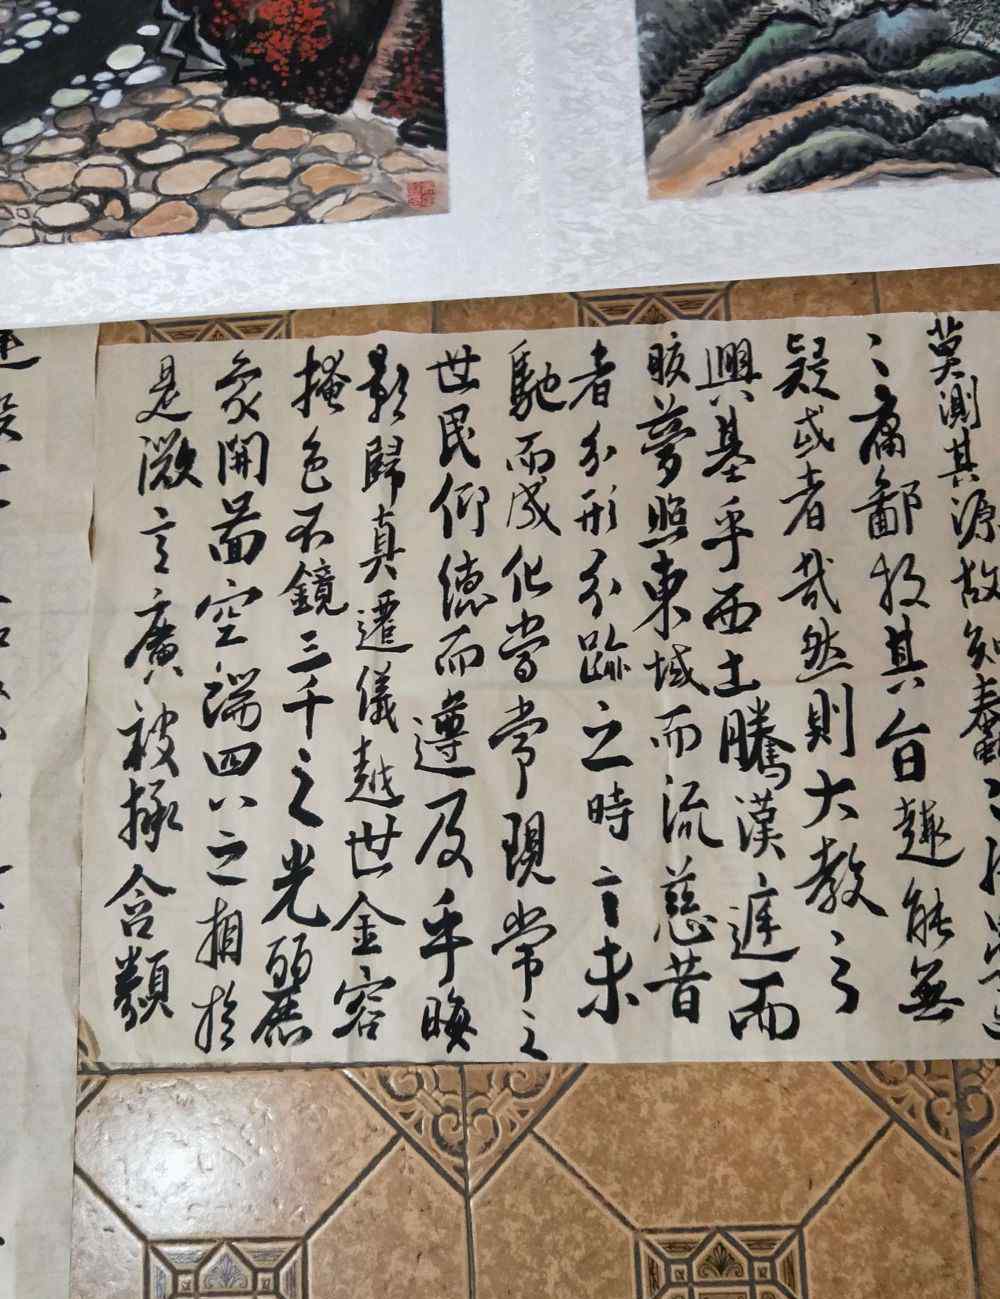 莫測其源故知蠢
〻庸鄙投其旨趣能無
疑或者哉然則大教之
興基乎西土騰漢庭而
皎夢照東域而流慈昔
者分形分跡之時言未
馳而成化當常現常之
世民仰德而遵及乎晦
影歸真遷儀越世金容
掩色不鏡三千之光麗
象開圖空端四八之相於
是微言廣被拯含類